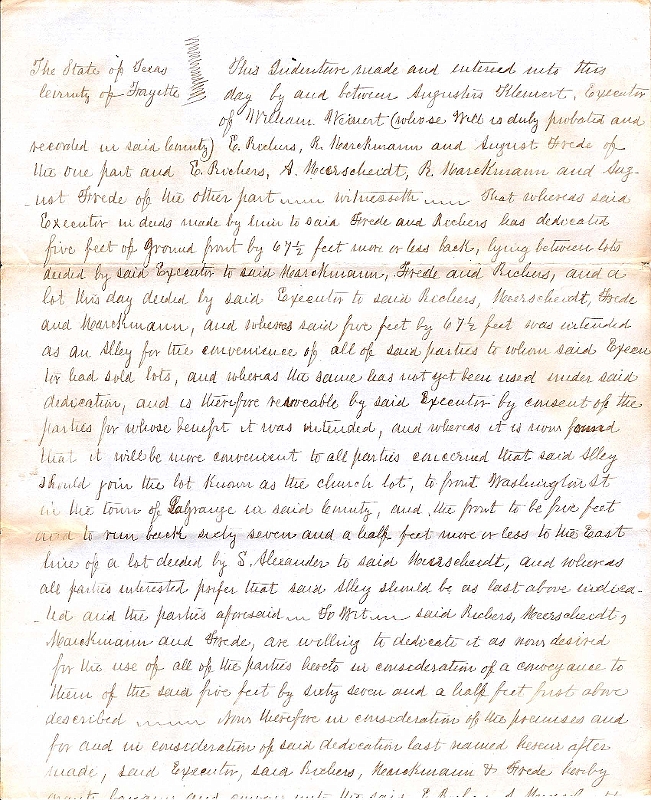 The State of Texas
County of Fayette
This Indenture made and entered into this
day by and between Augustus Klemert, Executor
of William Weinert (whose Will is duly probated and
recorded in said County) E. Riechers, R. Marckmann and August Frede of
the one part and E. Riechers, A. Meerscheidt, R. Marckmann and Aug-
-ust Frede of the other part witnesseth That whereas said
Executor in deeds made by him to said Frede and Riechers has dedicated
five feet of ground front by 67½ feet more or less back, lying between lots
deeded by said Executor to said Marckmann, Frede and Riechers, and a
lot this day deeded by said Executor to said Riechers, Meerscheidt, Frede
and Marckmann, and whereas said five feet by 67½ feet was intended
as an Alley for the convenience of all of said parties to whom said Execu
tor had sold lots, and whereas the same has not yet been used under said
dedication, and is therefore revoceable by said Executor by consent of the
parties for whose benefit it was intended, and whereas it is now found
that it will be more convenient to all parties concerned that said Alley
should join the lot known as the church lot, to front Washington St
in the town of Lagrange in said County, and the front to be five feet
and to run back sixty seven and a half feet more or less to the East
line of a lot deeded by S. Alexander to said Meerscheidt, and whereas
all parties interested prefer that said Alley should be as last above indica-
-ted and the parties aforesaid To Wit said Riechers, Meerscheidt,
Marckmann and Frede, are willing to dedicate it as now desired
for the use of all of the parties hereto in consideration of a conveyance to
them of the said five feet by sixty seven and a half feet first above
described Now therefore in consideration of the premises and
for and in consideration of said dedication last named herein after
made, said Executor, said Riechers, Marckmann & Frede hereby